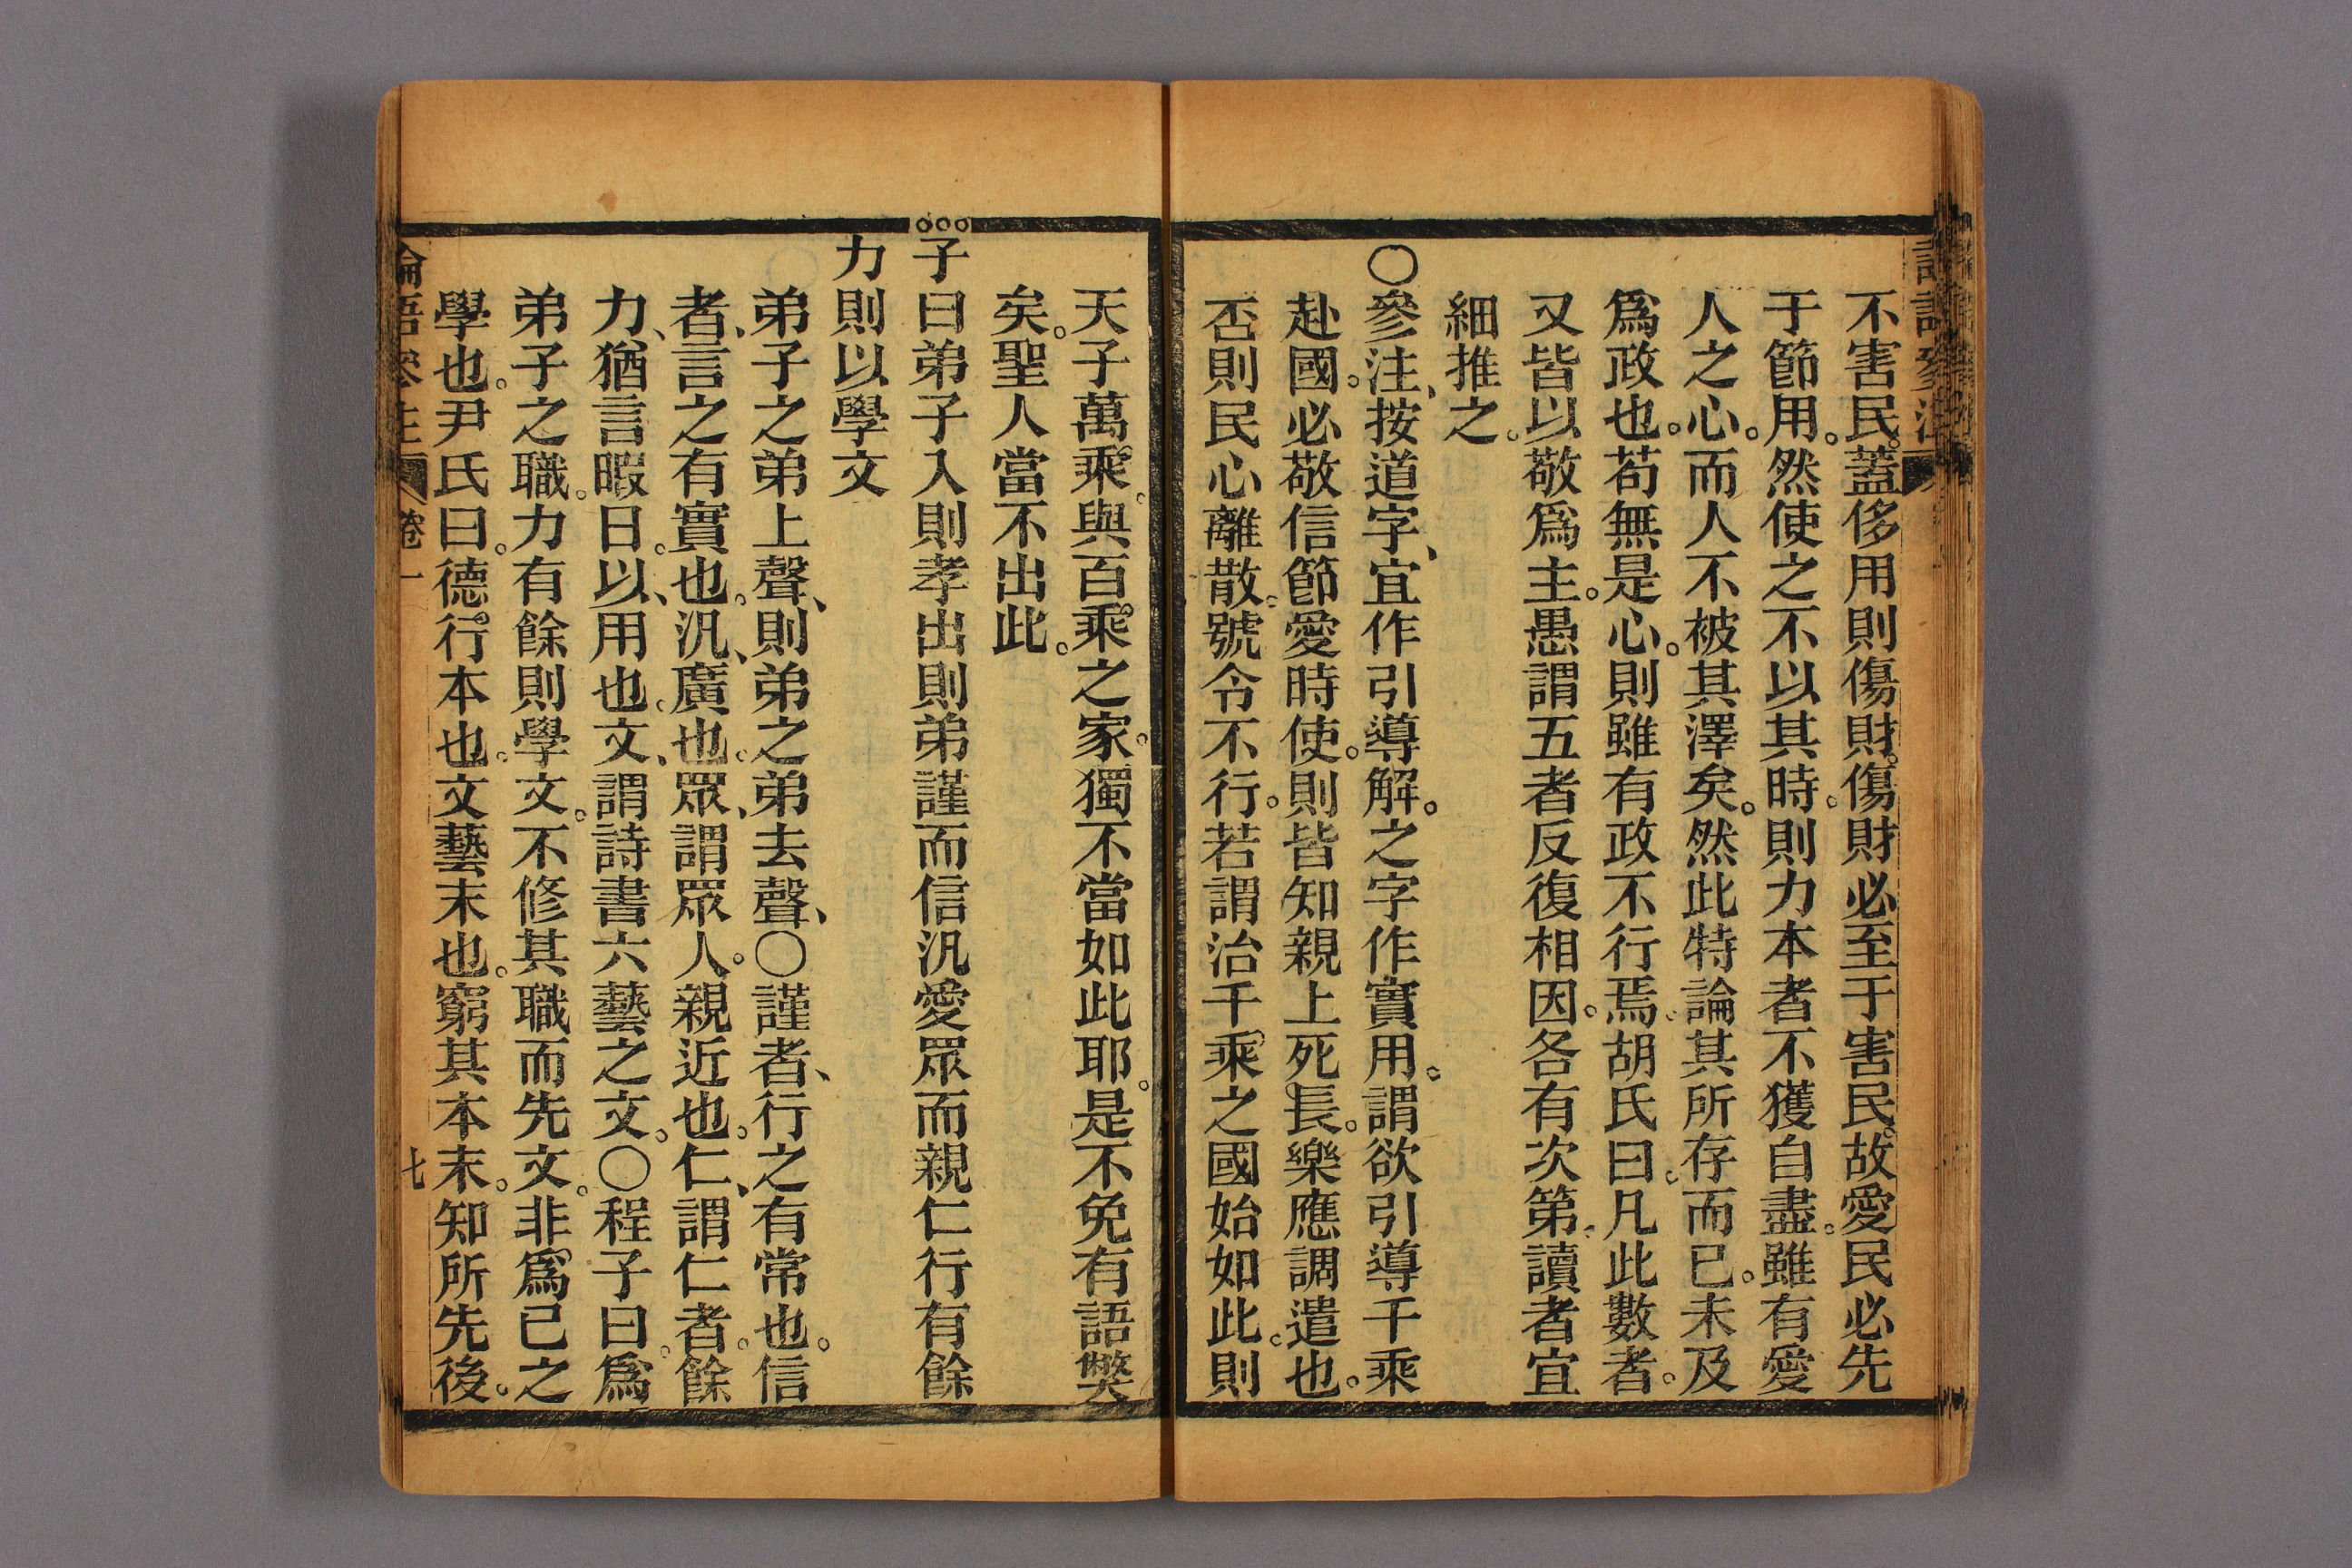 不害民。蓋侈用則傷財。傷財必至于害民。故愛民必先
于節用。然使之不以其時。則力本者不獲自盡。雖有愛
人之心。而人不被其澤矣。然此特論其所存而已。未及
爲政也。苟無是心。則雖有政不行焉。胡氏曰。凡此數者。
又皆以敬爲主。愚謂五者反復相因。各有次第、讀者宜
細推之。
〇參注、按道字、宜作引導解。之字作實用。謂欲引導千乘
赴國。必敬信節愛時使。則皆知親上死長。樂應調遣也。
否則民心離散。號令不行。若謂治千乘之國始如此。則
天子萬乘。與百乘之家。獨不當如此耶。是不免有語弊
矣。聖人當不出此。
子曰弟子入則孝出則弟謹而信汎愛眾而親仁行有餘
力則以學文
弟子之弟上聲、則弟之弟去聲、〇謹者、行之有常也。信
者、言之有實也。汎、廣也。眾、謂眾人。親近也。仁、謂仁者。餘
力、猶言暇日。以、用也。文、謂詩書六藝之文。〇程子曰。爲
弟子之職。力有餘則學文。不修其職而先文。非爲己之
學也。尹氏曰。德行本也。文藝末也。窮其本末。知所先後。
論語參注 卷一 七